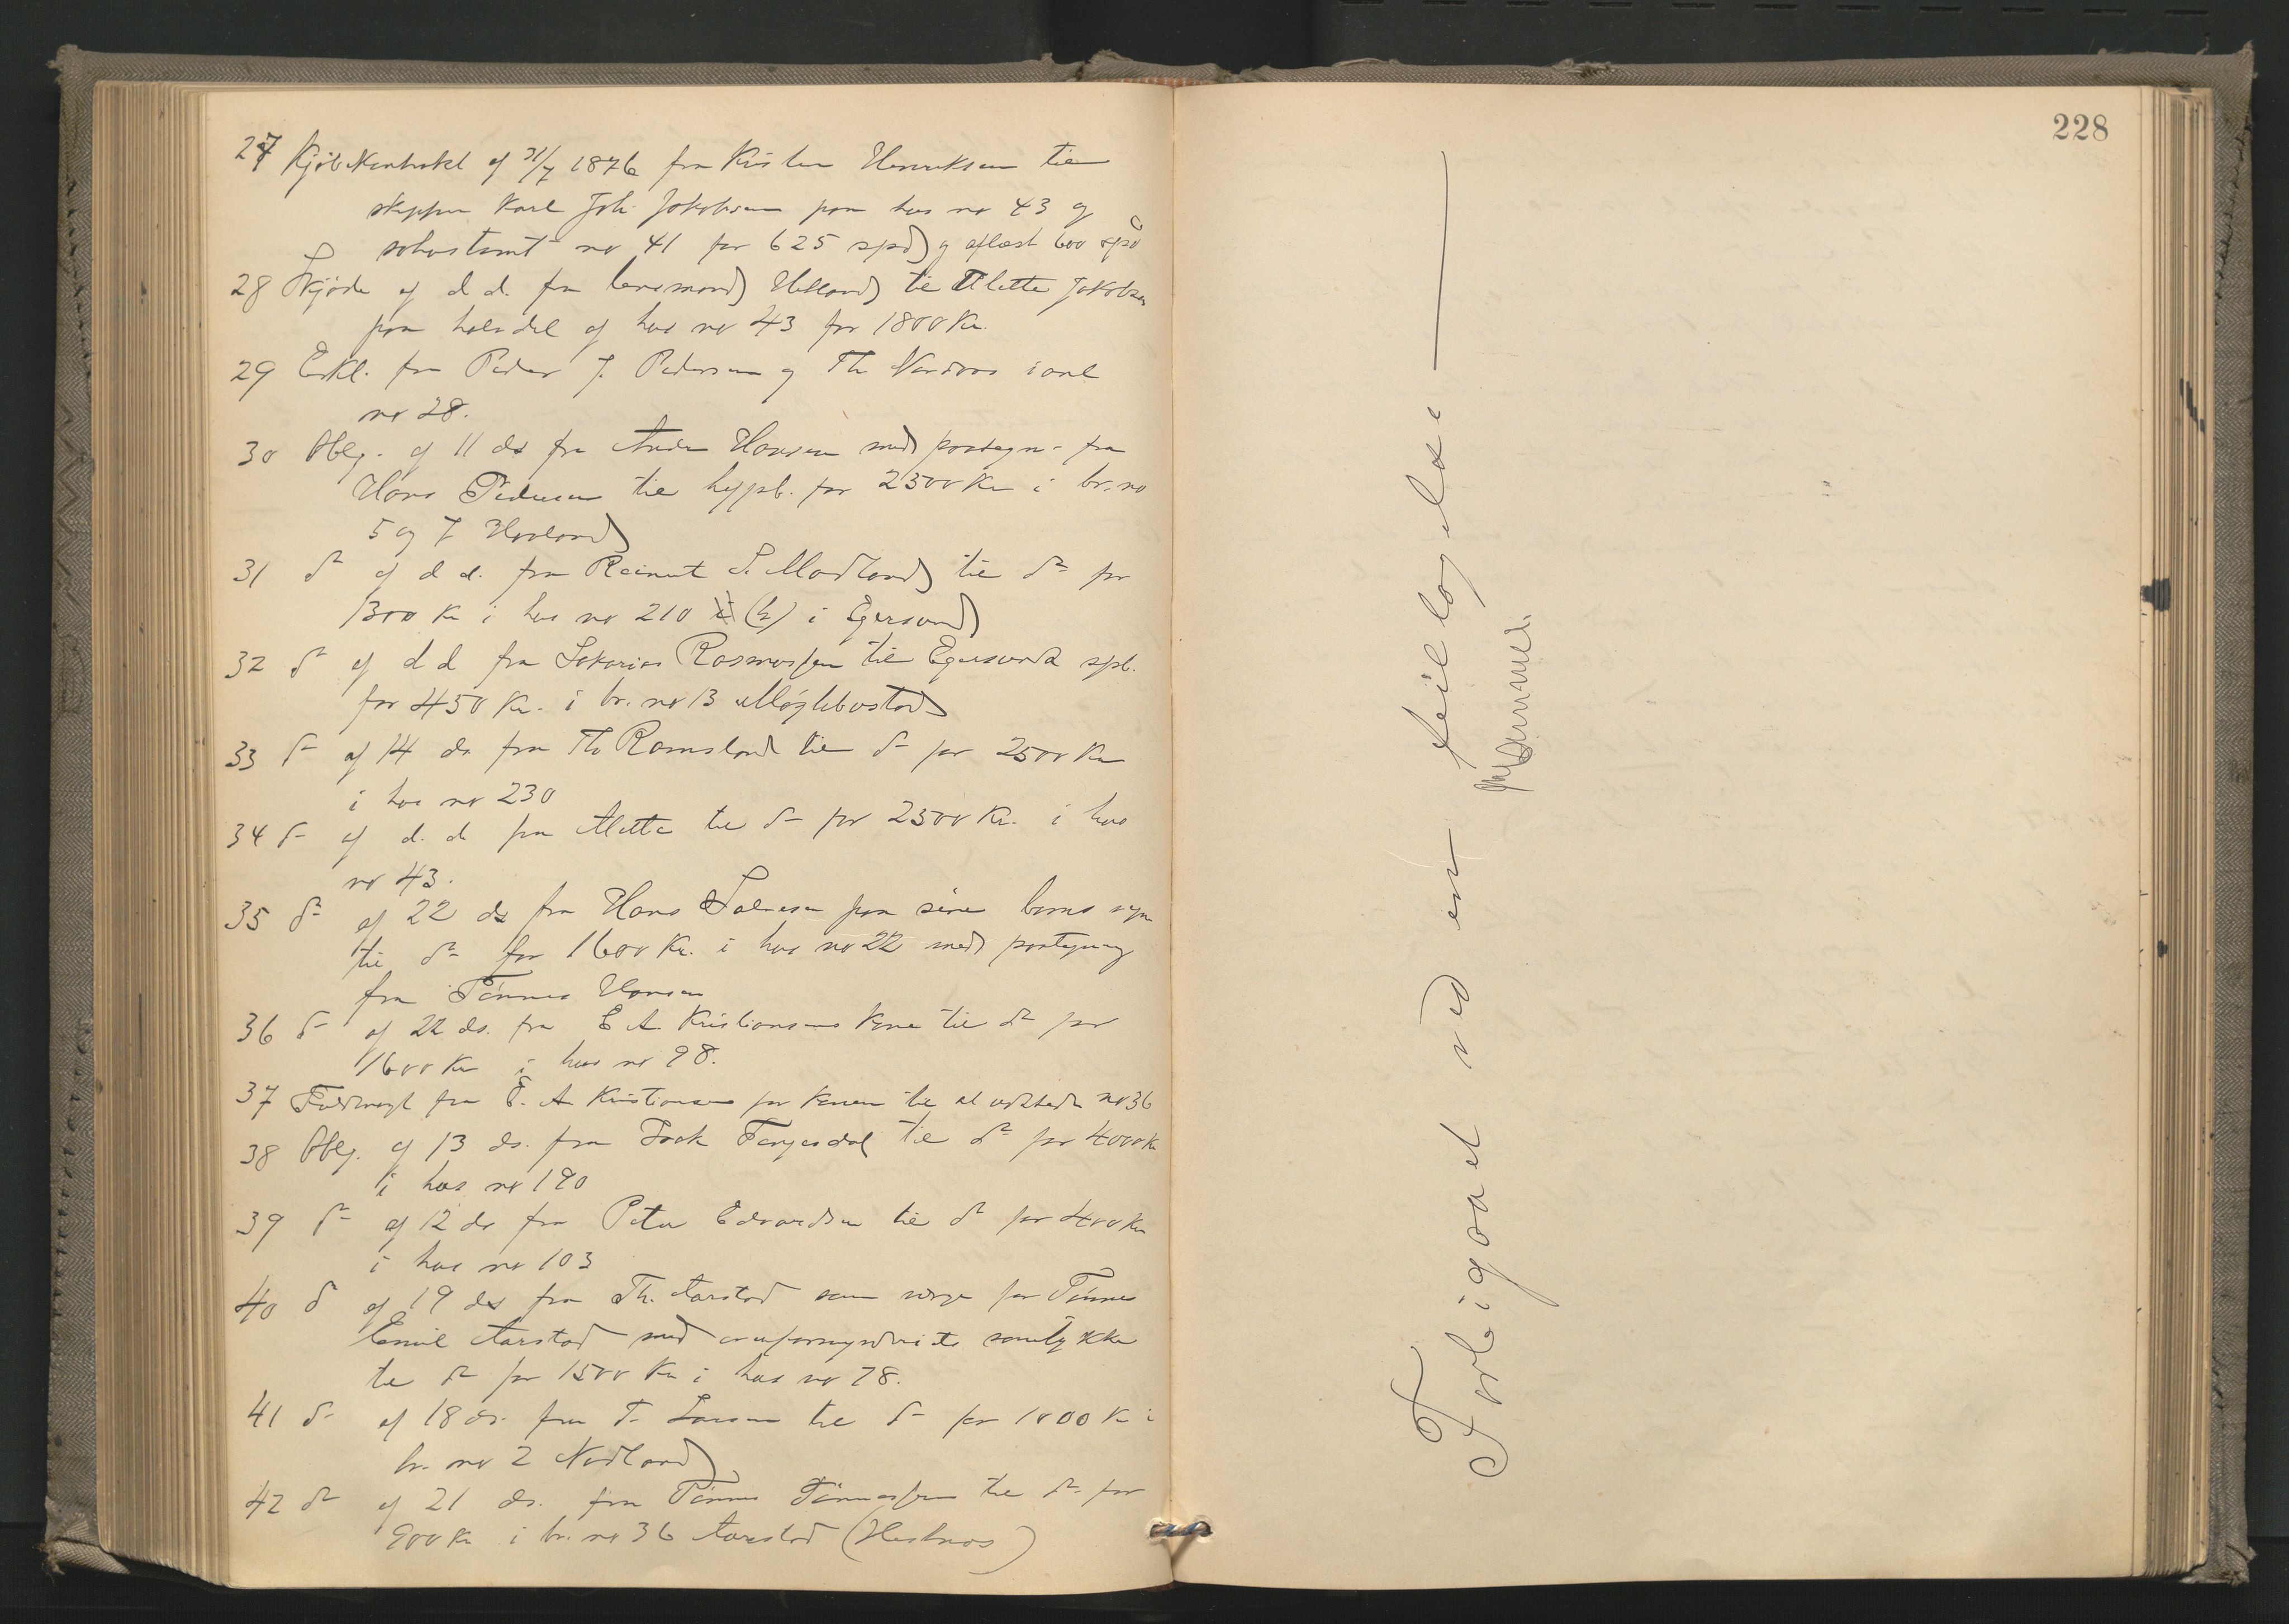 27 Kjøbekontrakt af 31/7 1876 fra Kristen Henriksen til
skipper Karl Joh. Jakobsen paa hus no 43 og
sohustomt no 41 for 625 spd og aflæst 600 spd
28 Skjøde af d.d. fra lensmand Hetland til Alette Jakobsen
paa halvdel af hus no 43 for 1800 Kr.
29 Erkl. fra Peder J. Pedersen og Th. i anl
no 28.
30 Oblg. af 11 ds fra Hansen med paategn. fra
Hans Pedersen til hypb. for 2300 Kr i br. no
5 og 7 Havland
31 do af d.d. fra Reinert S. Modland til do for
1300 Kr i hus no 210 (½) i Egersund
32 do af d.d. fra Sakarias Rasmussen til Egersunds spb.
for 450 Kr. i br. no 13 Møglebostad
33 do af 14 ds fra Th Ramsland til do for 2500 Kr
i hus no 230
34 do af d.d. fra Alette til do for 2300 Kr. i hus
no 43.
35 do af 22 ds fra Hans Salvesen paa sine børns vegne
til do for 1600 Kr. i hus no 22 med paategning
fra Tønnes Hansen
36 do af 22 ds. fra E. A. Kristiansens Kone til do for
1600 Kr i hus no 98.
37 Fuldmagt fra E. A. Kristiansen for Konen til at udstede no 36
38 Oblg. af 13 ds. fra Isak til do for 4000 Kr
i hus no 190
39 do af 12 ds fra Peter Edvardsen til do for 400 Kr
i hus no 103
40 do af 19 ds fra Th. Aarstad som verge for Tønnes
Emil Aarstad med overformynderiets samtykke
til do for 1500 Kr i hus no 78.
41 do af 18 ds. fra T. Larsen til do for 1000 Kr i
br. no 2 Nodland
42 do af 21 ds. fra Tønnes Tønnessen til do for
900 Kr i br. no 36 Aarstad (Hestnes)
228
Forbigaaet ved en feiltagelse